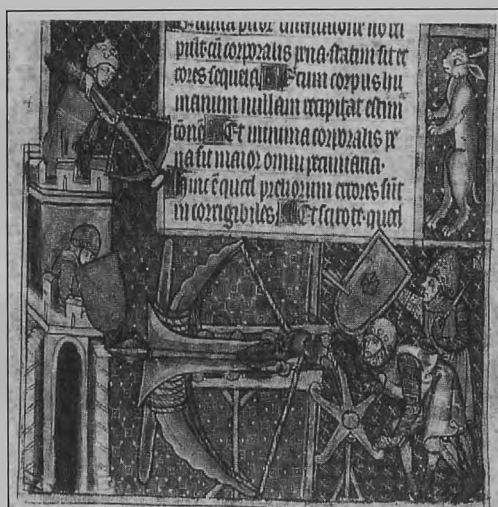 minima
cū corporalis pena statim sit et
cores sequela Et cum corpus hu
manum nullam recipiat estim
Et minima corporalis pe
na sit maior omni pecuniaria·
Hinc ē quod preliorum errores sūt
incorrigibiles Et scitote quod